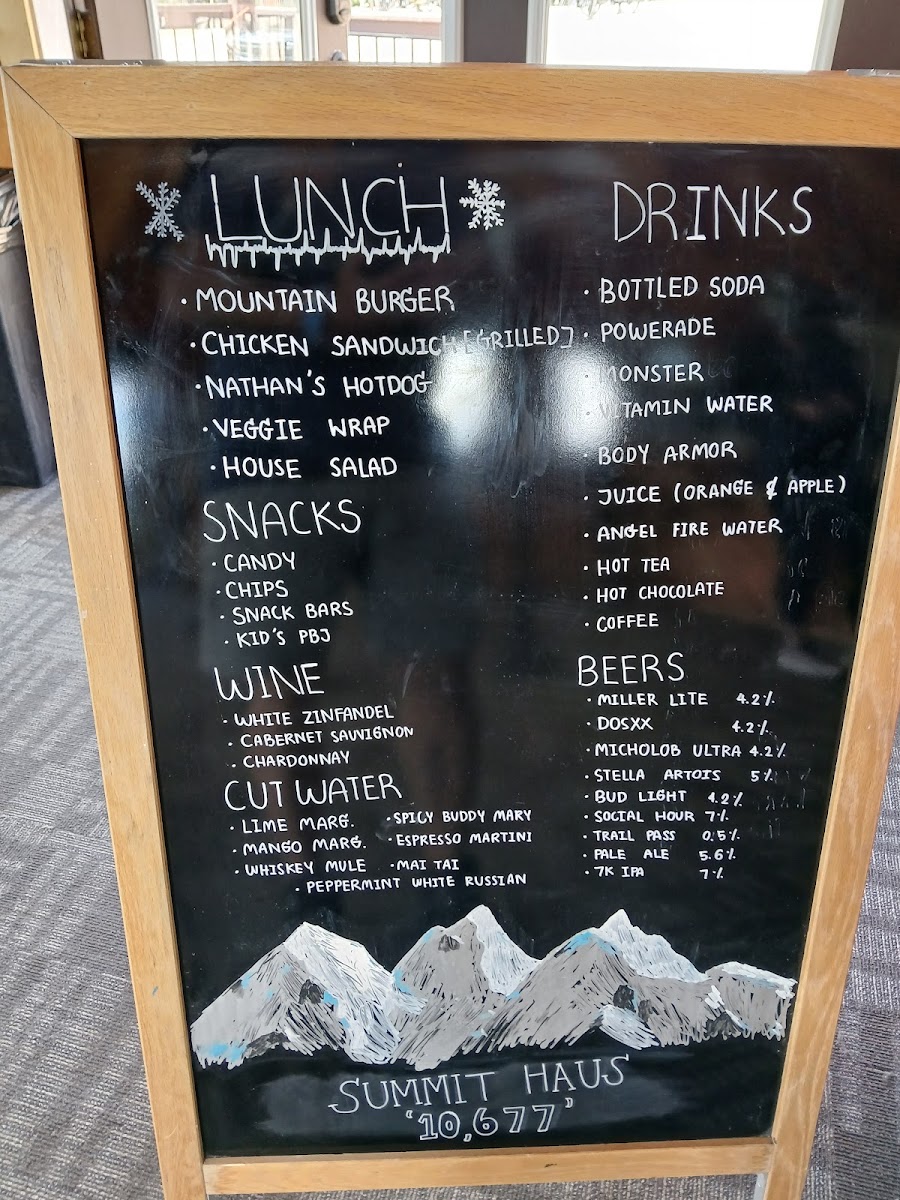 LUNCH
• MOUNTAIN BURGER
• CHICKEN SANDWICH [GRILLED]
• NATHAN'S HOTDOG
• VEGGIE WRAP
• HOUSE SALAD
SNACKS
• CANDY
• CHIPS
• SNACK BARS
• KID'S PBJ
WINE
• WHITE ZINFANDEL
• CABERNET SAUVIGNON
• CHARDONNAY
CUT WATER
• LIME MARG.
• MANGO MARG.
• WHISKEY MULE
• SPICY BUDDY MARY
• ESPRESSO MARTINI
• MAI TAI
• PEPPERMINT WHITE RUSSIAN
DRINKS
• BOTTLED SODA
• POWERADE
• MONSTER
• VITAMIN WATER
• BODY ARMOR
• JUICE (ORANGE & APPLE)
• ANGEL FIRE WATER
• HOT TEA
• HOT CHOCOLATE
• COFFEE
BEERS
• MILLER LITE 4.2%
• DOSXX 4.2%
• MICHOLOB ULTRA 4.2%
• STELLA ARTOIS 5%
• BUD LIGHT 4.2%
• SOCIAL HOUR 7%
• TRAIL PASS 0.5%
• PALE ALE 5.6%
• 7K IPA 7%
SUMMIT HAUS
'10,677'